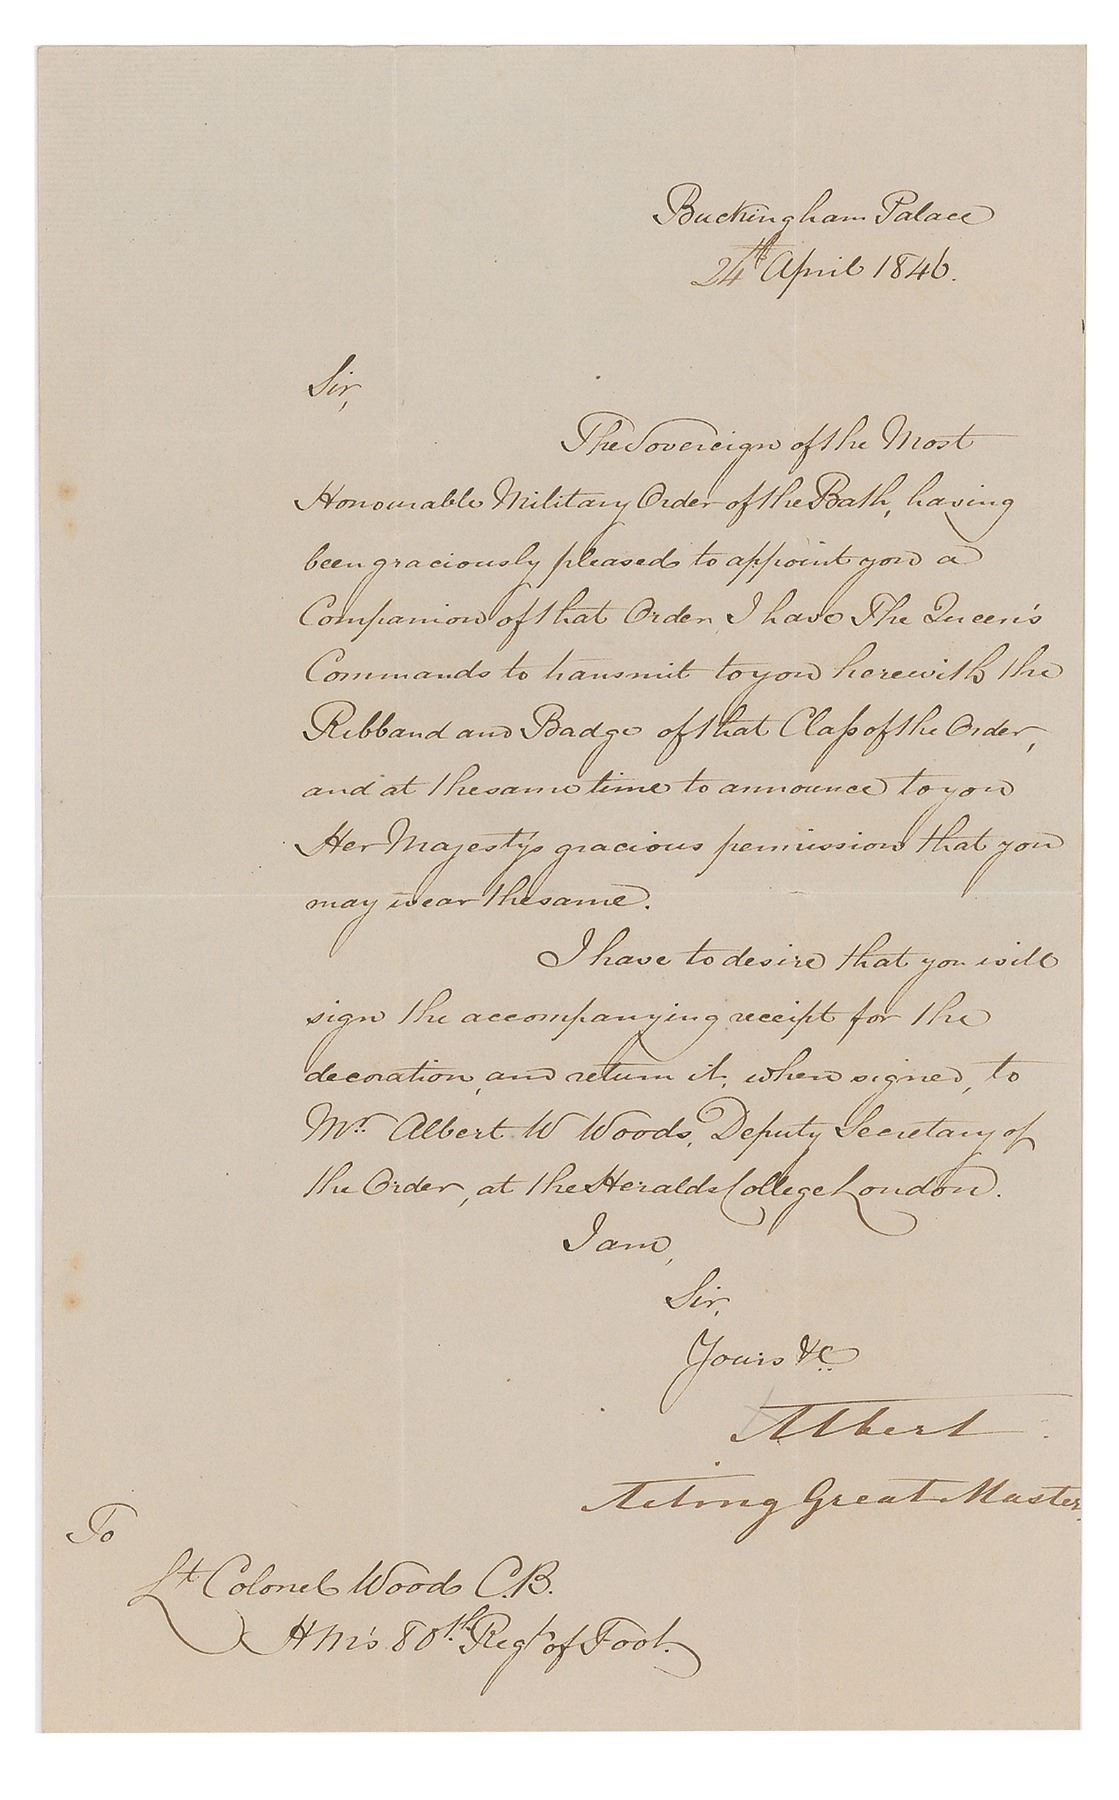 Buckingham Palace
24th April 1846.
Sir,
The Sovereign of the Most
Honourable Military Order of the Bath, having
been graciously pleased to appoint you a
Companion of that Order, I have The Queen's
Commands to transmit to you herewith the
Ribband and Badge of that Class of the Order,
and at the same time to announce to you
Her Majesty's gracious permission that you
may wear the same.
I have to desire that you will
sign the accompanying receipt for the
decoration, and return it, when signed, to
Mr. Albert W Woods, Deputy Secretary of
the Order, at the Heralds College London.
I am,
Sir,
Yours &c
Albert
Acting Great Master.
To
Lt Colonel Wood C.B.
H M's 80th Regt of Foot.